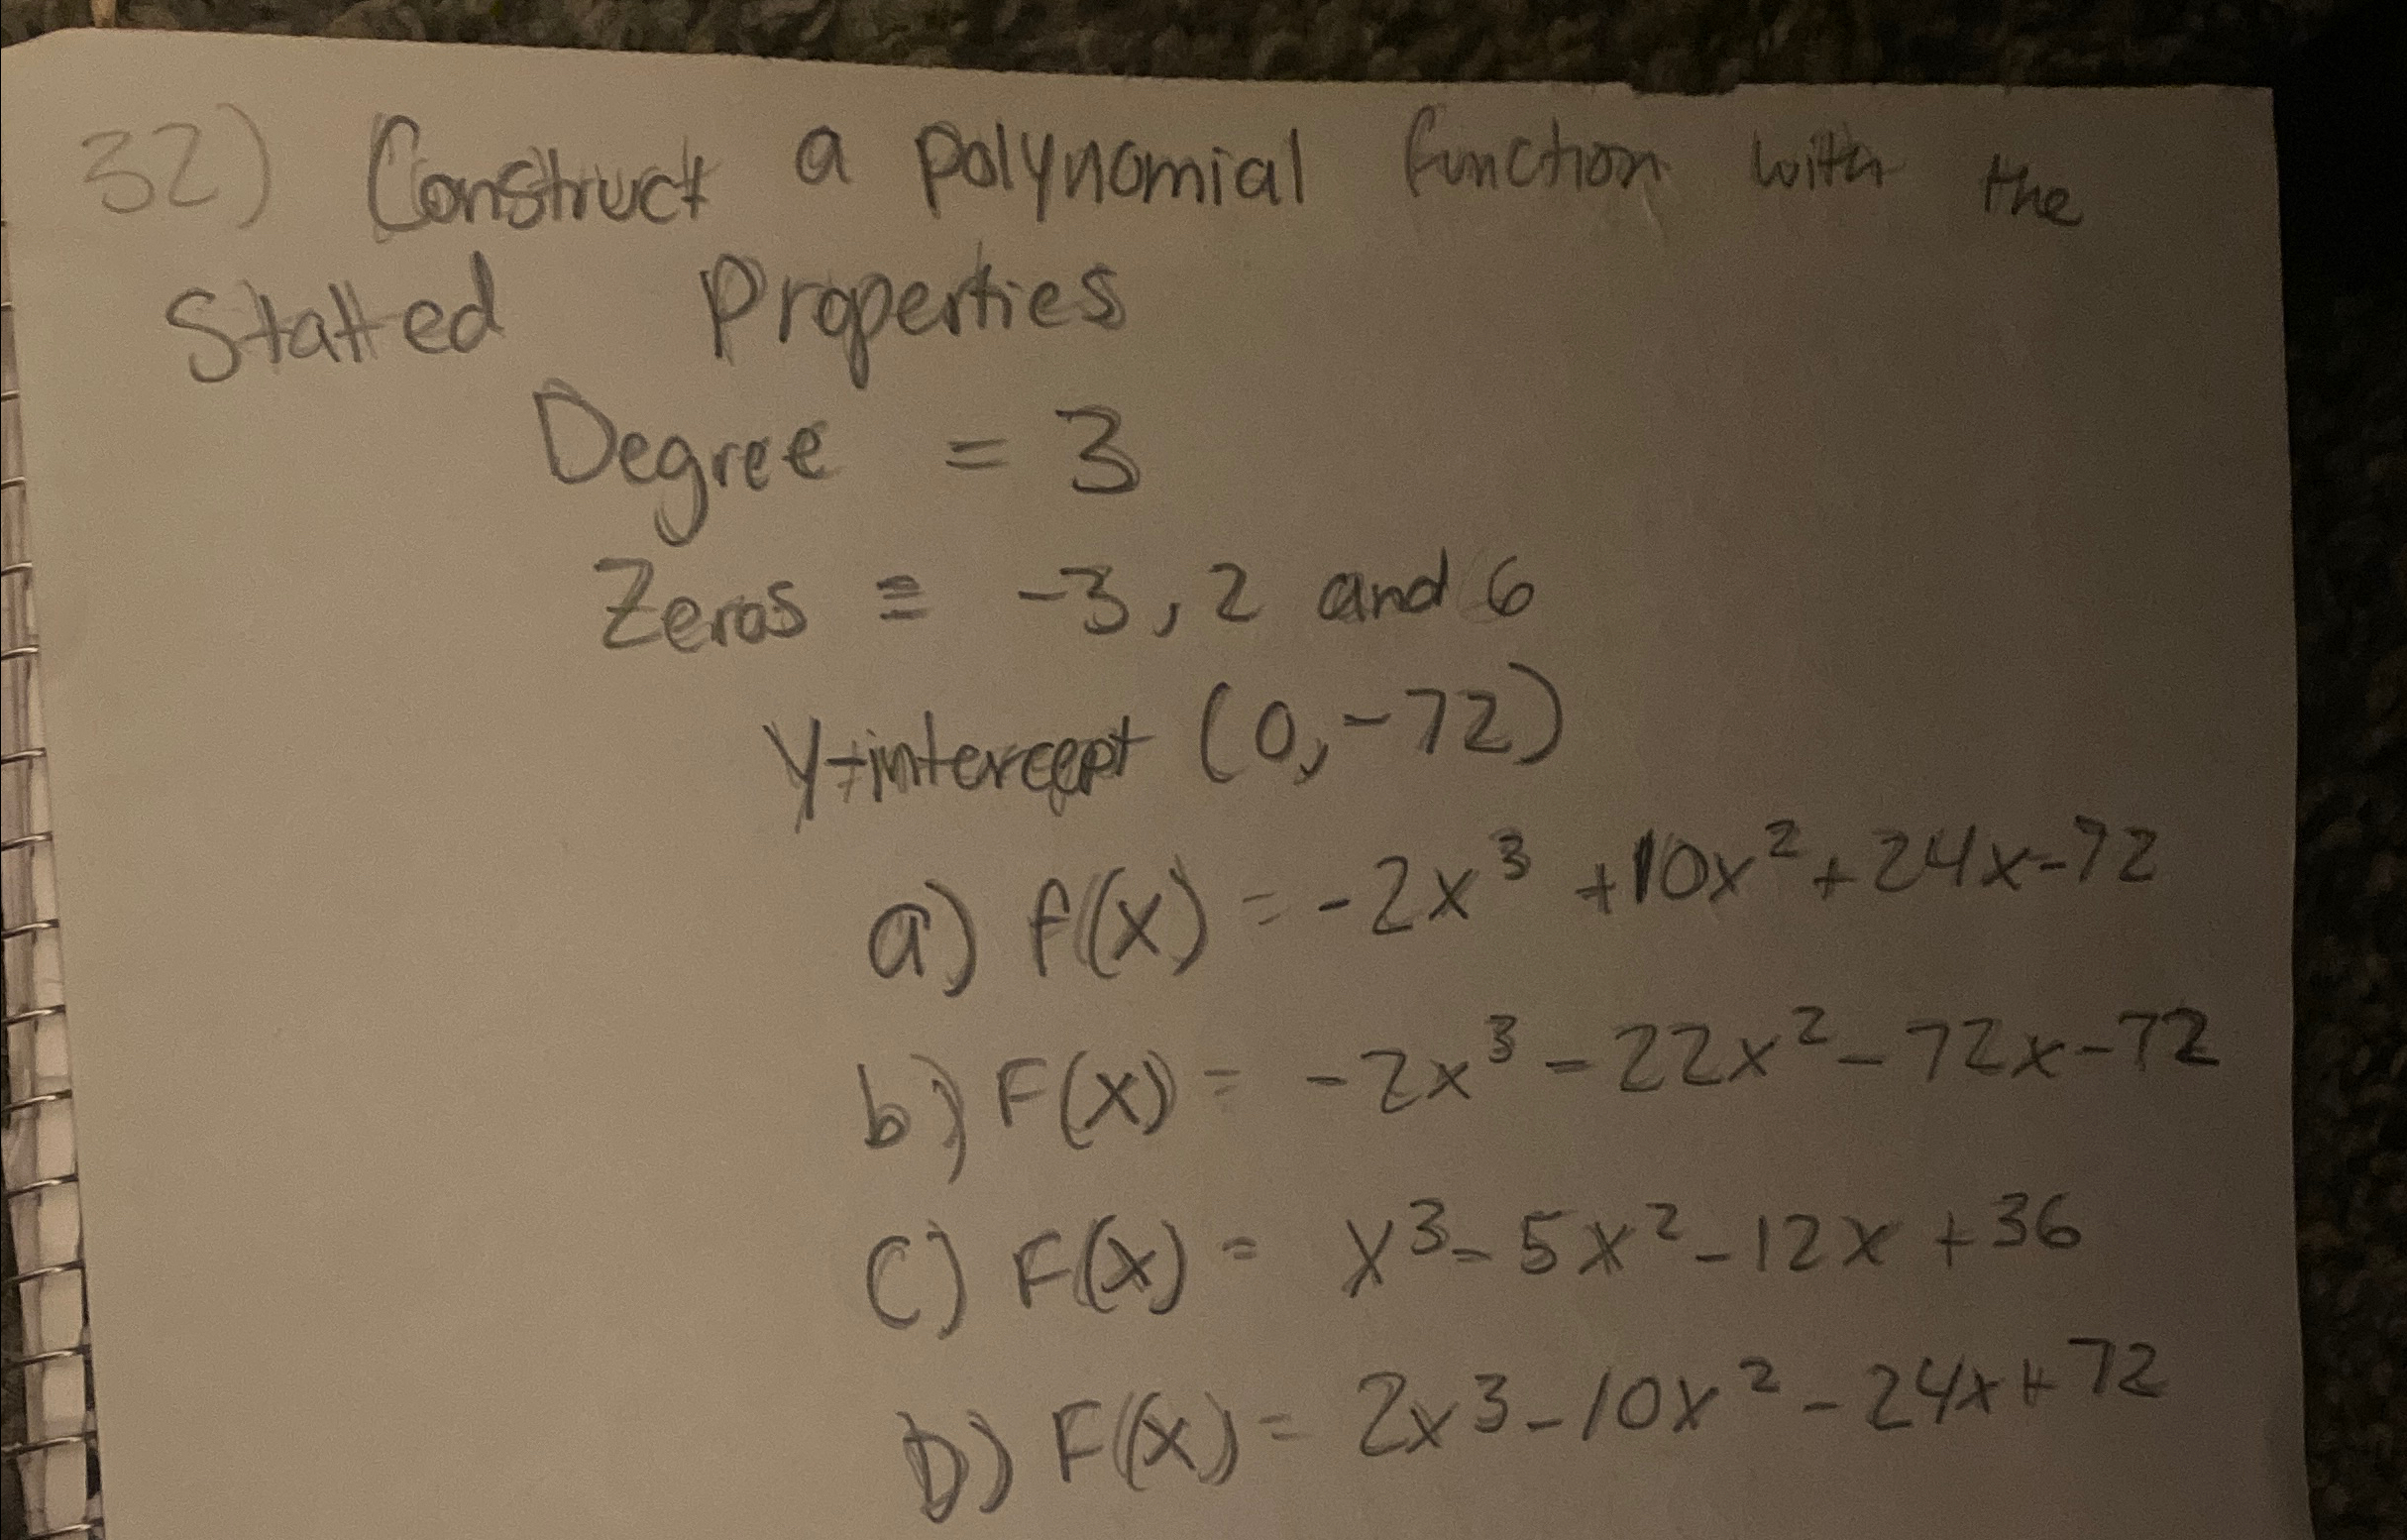 32) Construct a polynomial function with the
Statted Properties
Degree = 3
Zeros = -3, 2 and 6
Y-intercept (0,-72)
a) f(x) = -2x³ +10x² + 24x-72
b) F(x) = -2x³ - 22x² - 72x-72
C) F(x) = x³- 5x² -12x +36
D) F(x) = 2x³ -10x² - 24x + 72